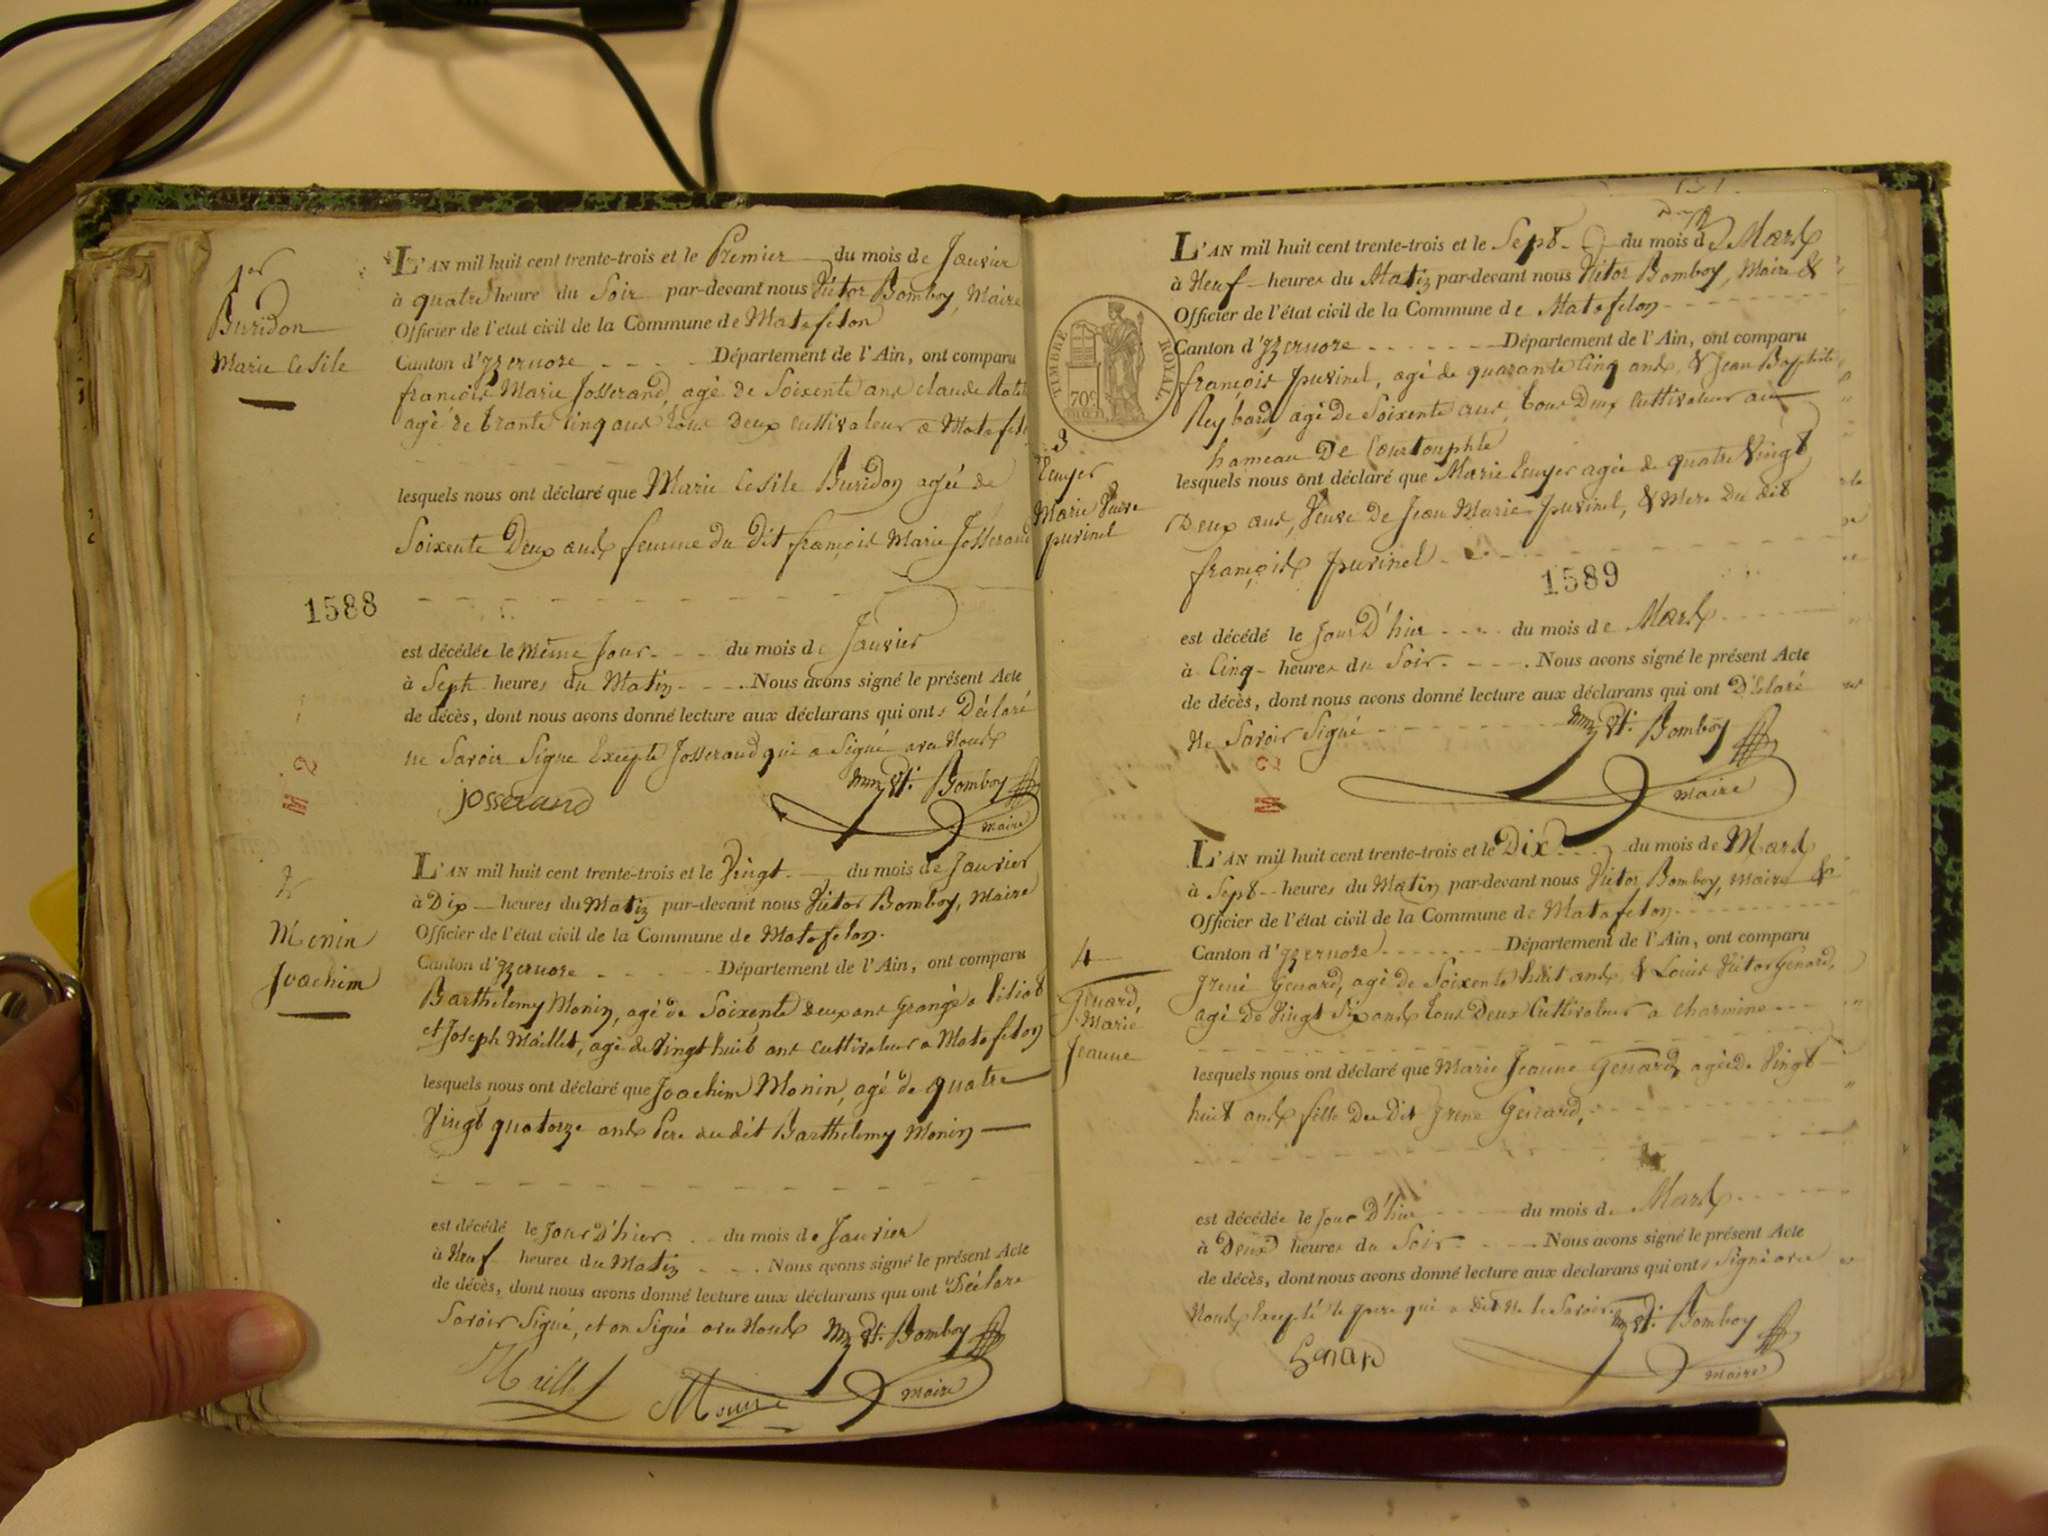 1er
Buridon
Marie Cesile
L'AN mil huit cent trente-trois et le Premier du mois de Janvier
à quatre heure du Soir par-devant nous Victor Bomboy, Maire
Officier de l'état civil de la Commune de Matafelon
Canton d'Izernore Département de l'Ain, ont comparu
françois Marie Josserand, agé de Soixente ans claude
agé de trante cinq ans tous Deux cultivateur a Matafelon
lesquels nous ont déclaré que Marie Cesile Buridon agée de
Soixente Deux ans femme du Dit françois Marie Josserand
1588
est décédée le même Jour du mois de Janvier
à Sept heures du Matin Nous avons signé le présent Acte
de décès, dont nous avons donné lecture aux déclarans qui ont Déclaré
ne Savoir Signe Excepte Josserand qui a Signé avec Nous
josserand Bomboy
maire
2
Monin
Joachim
L'AN mil huit cent trente-trois et le Vingt du mois de Janvier
à Dix heures du Matin par-devant nous Victor Bomboy, Maire
Officier de l'état civil de la Commune de Matafelon.
Canton d'Izernore Département de l'Ain, ont comparu
Barthelemy Monin, agé de Soixente deux ans Grangé a
et Joseph Maillet, agé de Vingt huit ans cultivateur a Matafelon
lesquels nous ont déclaré que Joachim Monin, agé de quatre
Vingt quatorze ans Pere du dit Barthelemy Monin
est décédé le Jour D'hier du mois de Janvier
à Neuf heures du Matin Nous avons signé le présent Acte
de décès, dont nous avons donné lecture aux déclarans qui ont Déclaré
Savoir Signé, et on Signé avec Nous Bomboy
Maillet Monin maire
TIMBRE ROYAL
70c
L'AN mil huit cent trente-trois et le Sept du mois de Mars
à Neuf heures du Matin par-devant nous Victor Bomboy, Maire &
Officier de l'état civil de la Commune de Matafelon
Canton d'Izernore Département de l'Ain, ont comparu
françois Juvinel, agé de quarante Cinq ans, & Jean Baptiste
Reybard, agé De Soixente ans, tous Deux Cultivateur au
hameau De Courtouphle
3
Ecuyer
Marie Veuve
Juvinel
lesquels nous ont déclaré que Marie Ecuyer agée de quatre Vingt
Deux ans, Veuve De Jean Marie Juvinel, & Mere Du dit
françois Juvinel
1589
est décédé le Jour D'hier du mois de Mars
à Cinq heures du Soir. Nous avons signé le présent Acte
de décès, dont nous avons donné lecture aux déclarans qui ont Déclaré
Ne Savoir Signé Bomboy
maire
4
Genard,
Marie
Jeanne
L'AN mil huit cent trente-trois et le Dix du mois de Mars
à Sept heures du Matin par-devant nous Victor Bomboy, maire &
Officier de l'état civil de la Commune de Matafelon
Canton d'Izernore Département de l'Ain, ont comparu
Irené Genard, agé de Soixente huit ans & Louis Victor Genard,
agé De Vingt Six ans tous Deux Cultivateur a Charmine
lesquels nous ont déclaré que Marie Jeanne Genard, agée De Vingt
huit ans fille Du Dit Irene Genard,
est décédée le Jour D'hier du mois de Mars
à Deux heures du Soir. Nous avons signé le présent Acte
de décès, dont nous avons donné lecture aux déclarans qui ont Signé avec
Nous Excepté le pere qui a dit Ne le Savoir. Bomboy
Genard maire